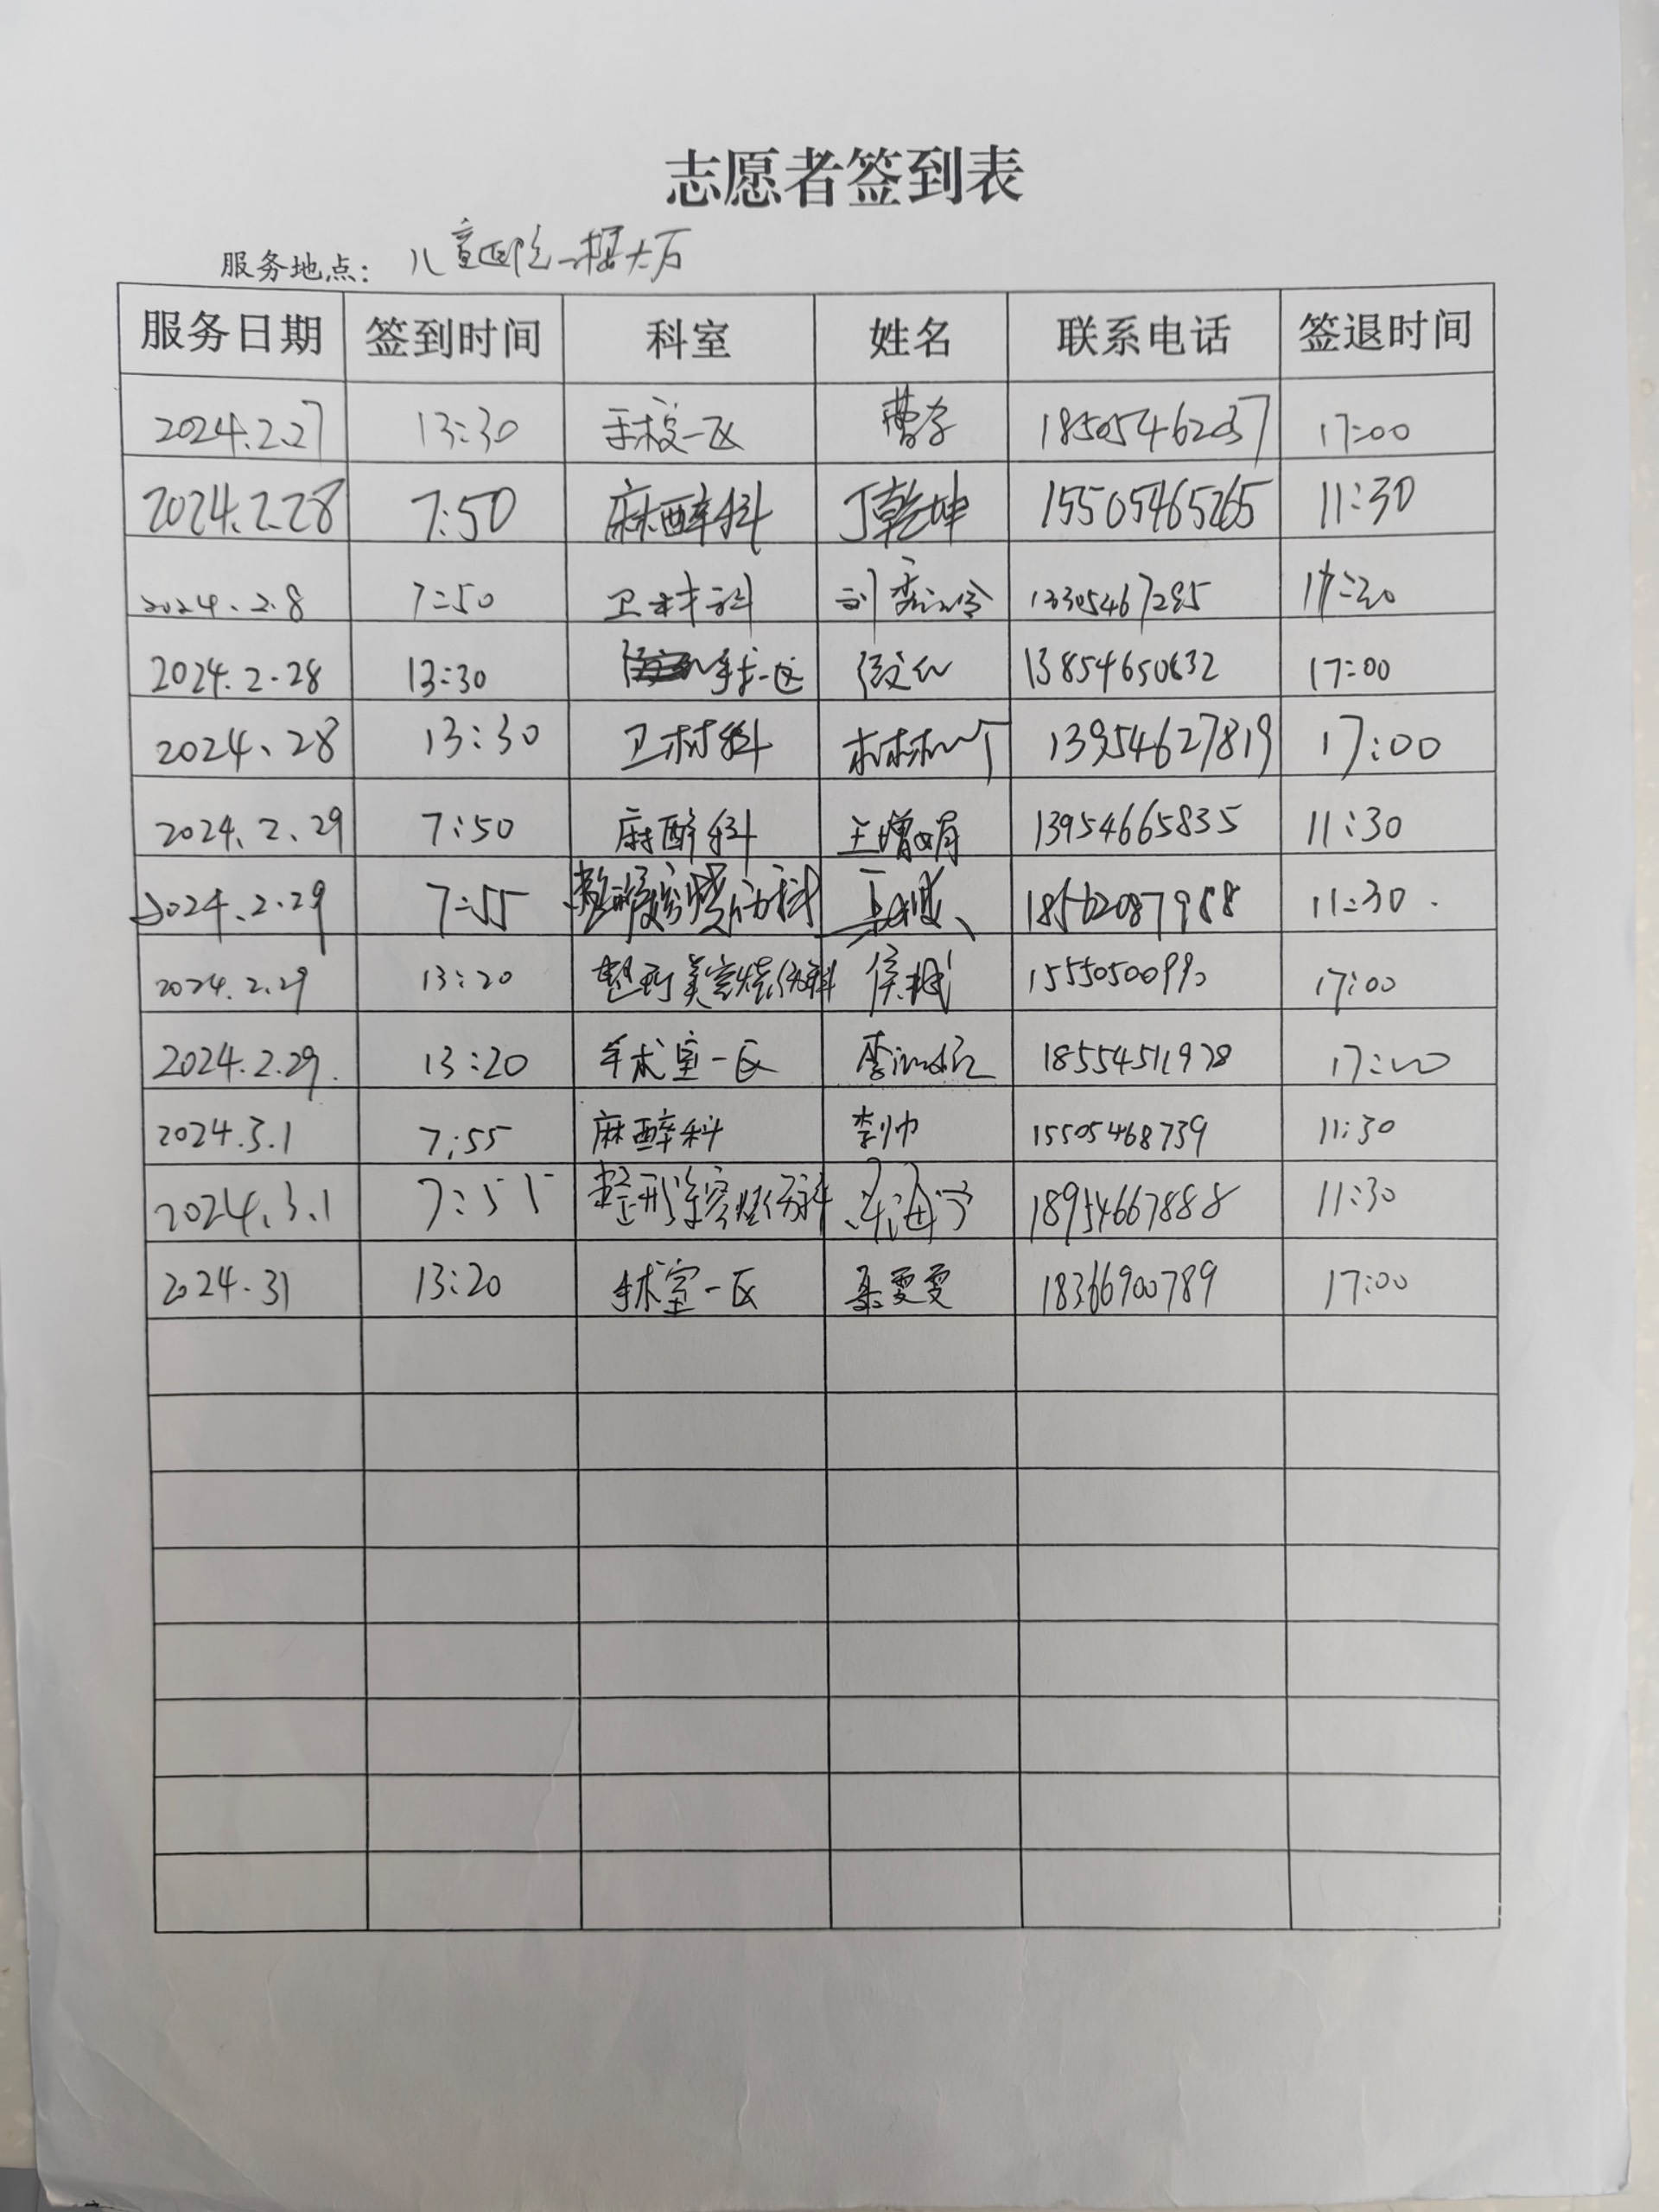 志愿者签到表
服务地点： 儿童医院一楼大厅
服务日期 签到时间 科室 姓名 联系电话 签退时间
2024.2.27 13:30 手术室一区 曹 18505462037 17:00
2024.2.28 7:50 麻醉科 丁乾坤 15505465265 11:30
2024.2.8 7:50 卫材科 刘 13305467285
2024.2.28 13:30 手术一区 13854650632 17:00
2024.28 13:30 卫材科 13954627819 17:00
2024.2.29 7:50 麻醉科 王增娟 13954665835 11:30
2024.2.29 7:55 18562087988 11:30.
2024.2.29 13:20 整形美容烧伤科 侯 15550500990 17:00
2024.2.29. 13:20 手术室一区 李 18554511978 17:00
2024.3.1 7:55 麻醉科 李帅 15505468739 11:30
2024.3.1 7:55 整形美容烧伤科 18954667888 11:30
2024.31 13:20 手术室一区 桑雯雯 18366900789 17:00